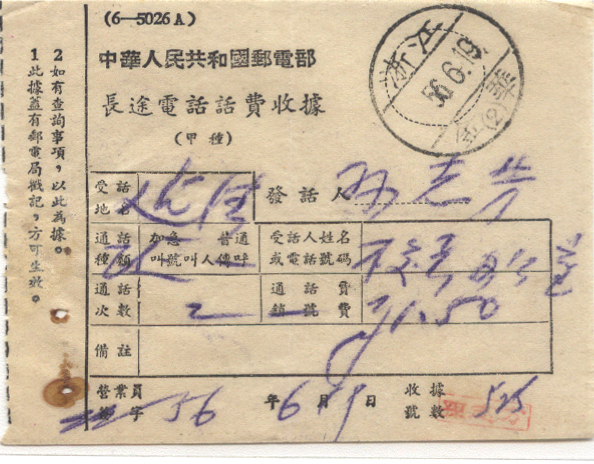 (6—5026A)
中華人民共和國郵電部
長途電話話費收據
(甲種)
浙江
56.6.19
金華
(2)
受話地名
發話人
通話種類
加急 普通
叫號叫人傳呼
受話人姓名或電話號碼
通話次數
2
通話費
銷號費
1.50
備註
營業員簽字
56年6月19日
收據號數
525
1 此據蓋有郵電局戳記，方可生效。
2 如有查詢事項，以此為據。